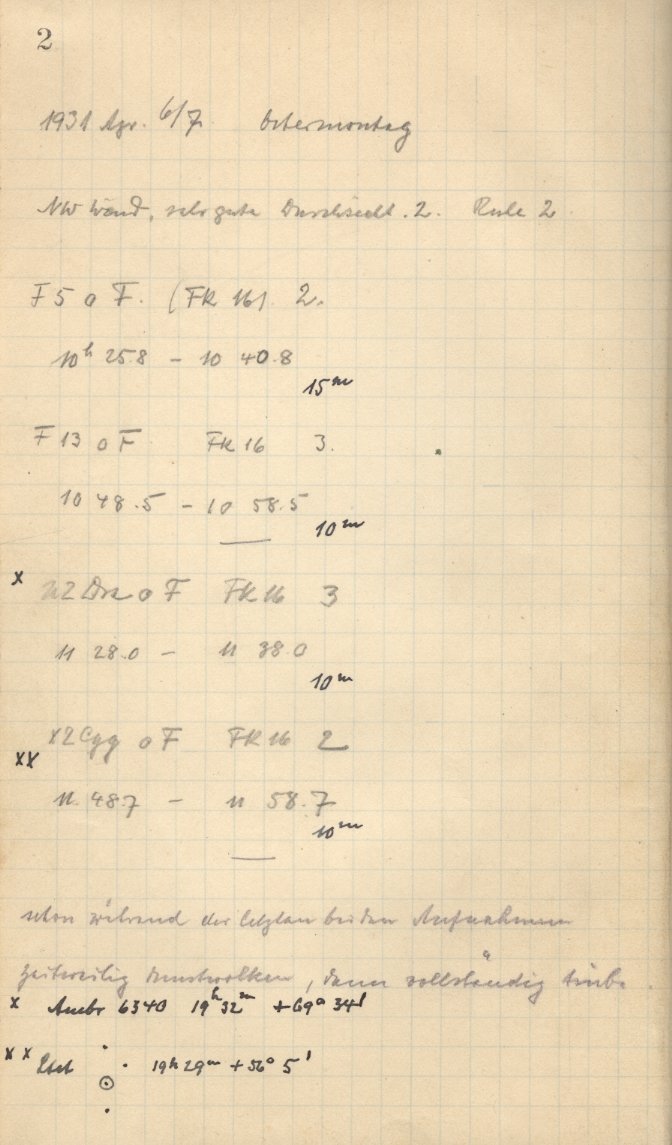 2
1931 Apr. 6/7 Ostermontag
NW Wand, sehr gute Durchsicht. 2. Ruhe 2
F 5 o F. (FK 16). 2.
10h 25.8 – 10 40.8
15m
F 13 o F FK 16 3.
10 48.5 – 10 58.5
10m
x Dra o F FK 16 3
11 28.0 – 11 38.0
10m
Cyg o F FK 16 2
xx
11 48.7 – 11 58.7
10m
schon während der letzten beiden Aufnahmen
zeitweilig Dunstwolken, dann vollständig trübe.
x Ambr 6340 19h 32m +69° 34'
xx 19h 29m +56° 5'